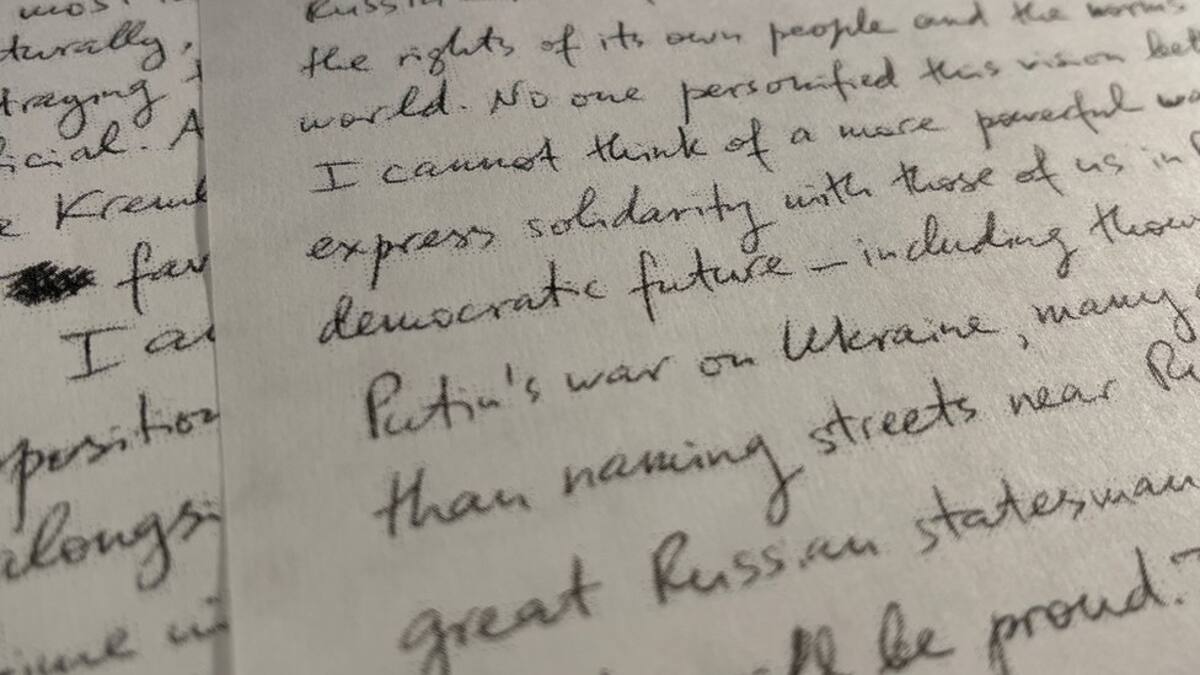 most
turally,
traying
icial. A
Kreml
fav
I a
position
alongsi
Russia
the rights of its own people and the norms
world. No one personified this vision bet
I cannot think of a more powerful wa
express solidarity with those of us in
democratic future – including thou
Putin's war on Ukraine, many
than naming streets near Ru
great Russian statesman
be proud.